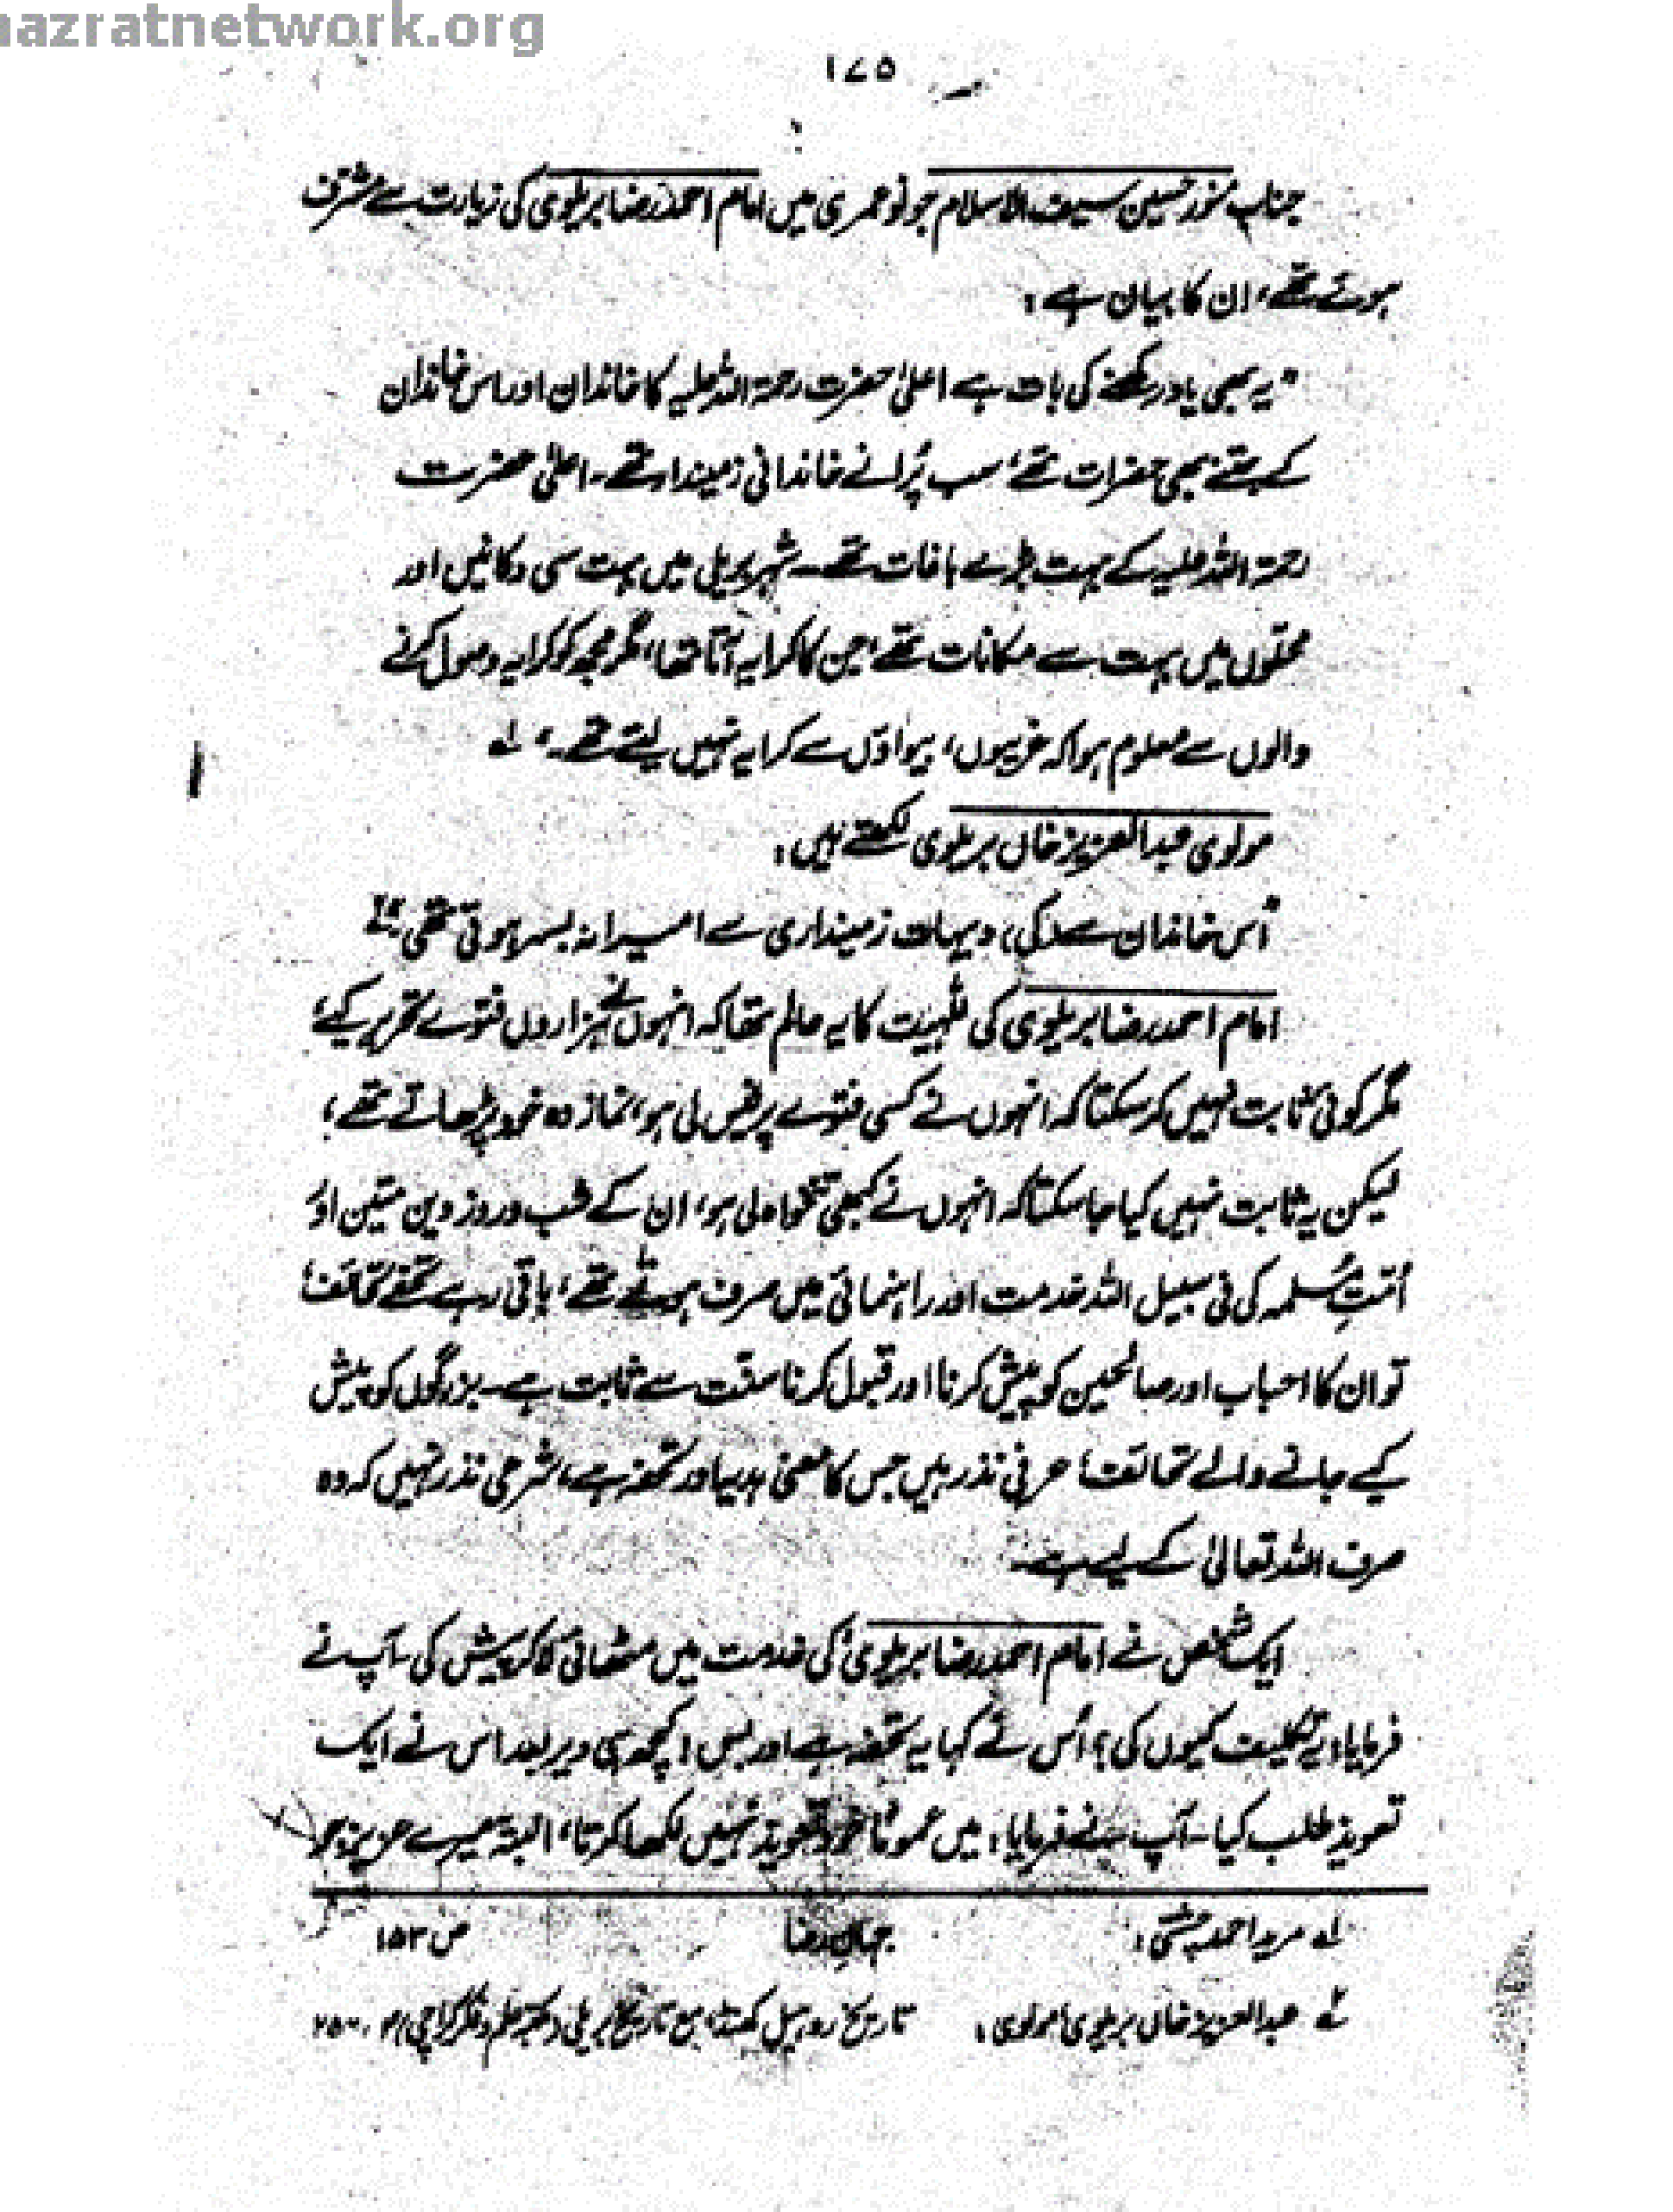 hazratnetwork.org
۱۷۵
جناب منور حسین سیف الاسلام جو نوعمری میں امام احمد رضا بریلوی کی زیارت سے مشرف
ہوئے تھے، ان کا بیان ہے:
"یہ بھی یاد رکھنے کی بات ہے اعلیٰ حضرت رحمۃ اللہ علیہ کا خاندان اور اس خاندان
کے جتنے بھی حضرات تھے، سب پُرانے خاندانی زمیندار تھے۔ اعلیٰ حضرت
رحمۃ اللہ علیہ کے بہت بڑے باغات تھے۔ شہر بریلی میں بہت سی دکانیں اور
محلّوں میں بہت سے مکانات تھے، جن کا کرایہ آتا تھا، مگر مجھ کو کرایہ وصول کرنے
والوں سے معلوم ہوا کہ غریبوں، بیواؤں سے کرایہ نہیں لیتے تھے۔" ۱؎
مولوی عبدالعزیز خاں بریلوی لکھتے ہیں:
"اُس خاندان کی دیہات زمینداری سے امیرانہ بسر ہوتی تھی" ۲؎
امام احمد رضا بریلوی کی للہیت کا یہ عالم تھا کہ انہوں نے ہزاروں فتوے تحریر کیے،
مگر کوئی ثابت نہیں کر سکتا کہ انہوں نے کسی فتوے پر فیس لی ہو، نماز وہ خود پڑھاتے تھے،
لیکن یہ ثابت نہیں کیا جا سکتا کہ انہوں نے کبھی تنخواہ لی ہو، ان کے شب و روز دین متین اور
اُمتِ مُسلمہ کی فی سبیل اللہ خدمت اور راہنمائی میں صرف ہوتے تھے، باقی رہے تحفے تحائف،
تو ان کا احباب اور صالحین کو پیش کرنا اور قبول کرنا سنّت سے ثابت ہے۔ بزرگوں کو پیش
کیے جانے والے تحائف، عرفی نذر ہیں جس کا معنیٰ ہدیہ اور تحفہ ہے، شرعی نذر نہیں کہ وہ
صرف اللہ تعالیٰ کے لیے ہے۔
ایک شخص نے امام احمد رضا بریلوی کی خدمت میں مٹھائی لا کر پیش کی۔ آپ نے
فرمایا: یہ تکلیف کیوں کی؟ اُس نے کہا یہ تحفہ ہے اور بس، کچھ ہی دیر بعد اس نے ایک
تعویذ طلب کیا۔ آپ نے فرمایا: میں عموماً خود تعویذ نہیں لکھا کرتا، البتہ میرے عزیز جو
۱؎ مرید احمد چشتی: جہانِ رضا ص ۱۵۳
۲؎ عبدالعزیز خاں بریلوی، مولوی: تاریخ روہیل کھنڈ، مع تاریخ بریلی (مکتبہ علم و فکر کراچی)